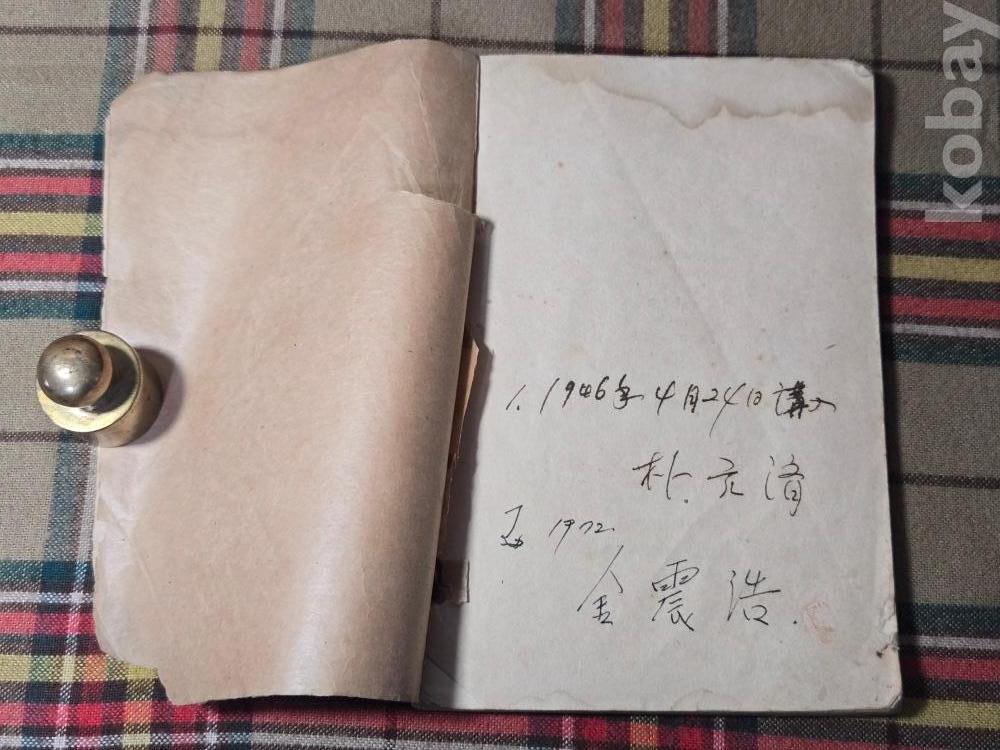 1. 1946年 4月24日 講入
朴元濟
1972.
金震浩.
kobay